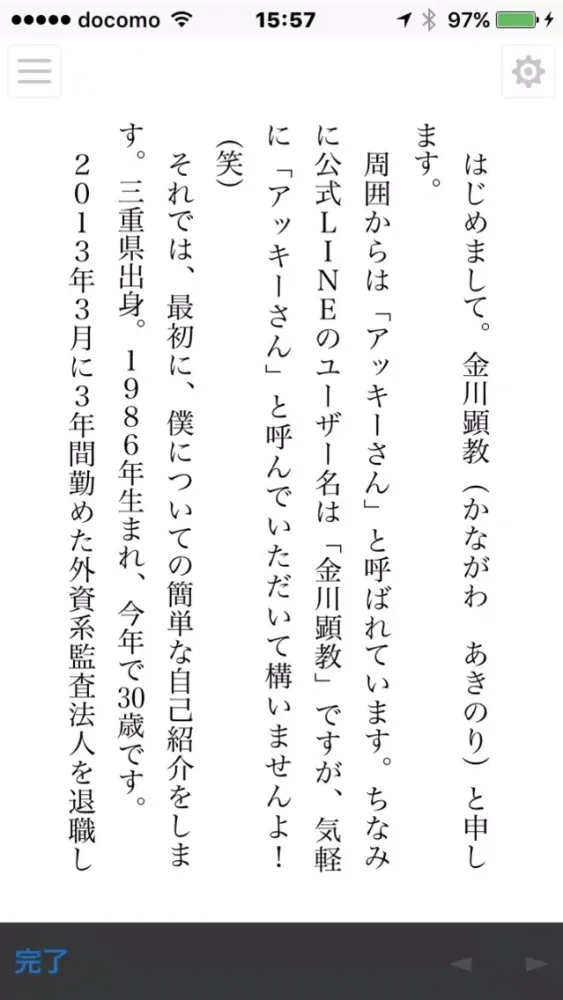 docomo
15:57
97%
はじめまして。金川顕教（かながわ　あきのり）と申し
ます。
周囲からは「アッキーさん」と呼ばれています。ちなみ
に公式ＬＩＮＥのユーザー名は「金川顕教」ですが、気軽
に「アッキーさん」と呼んでいただいて構いませんよ！
（笑）
それでは、最初に、僕についての簡単な自己紹介をしま
す。三重県出身。１９８６年生まれ、今年で30歳です。
２０１３年３月に３年間勤めた外資系監査法人を退職し
完了